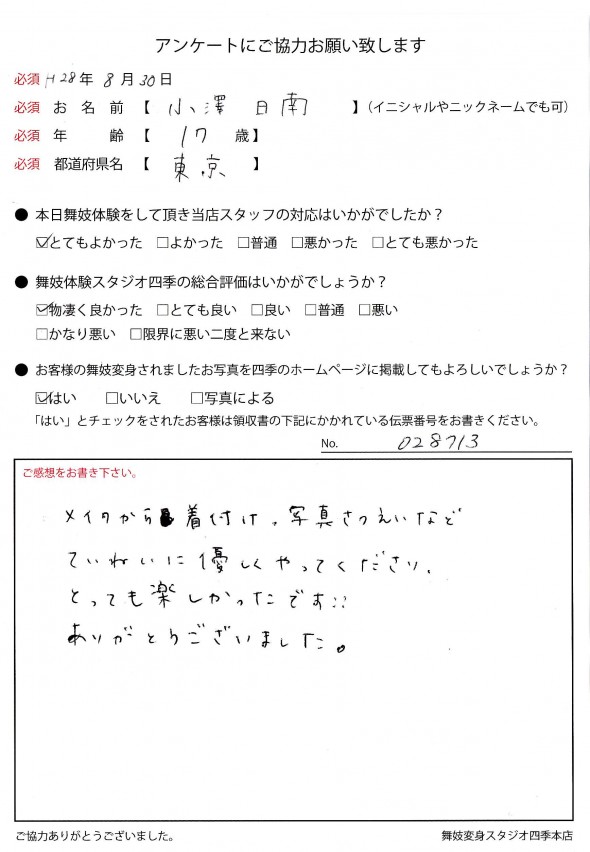 アンケートにご協力お願い致します
必須 H28年 8月30日
必須 お名前 【 小澤 日南 】（イニシャルやニックネームでも可）
必須 年齢 【 17 歳】
必須 都道府県名 【 東京 】
● 本日舞妓体験をして頂き当店スタッフの対応はいかがでしたか？
☑とてもよかった □よかった □普通 □悪かった □とても悪かった
● 舞妓体験スタジオ四季の総合評価はいかがでしょうか？
☑物凄く良かった □とても良い □良い □普通 □悪い
□かなり悪い □限界に悪い二度と来ない
● お客様の舞妓変身されましたお写真を四季のホームページに掲載してもよろしいでしょうか？
☑はい □いいえ □写真による
「はい」とチェックをされたお客様は領収書の下記にかかれている伝票番号をお書きください。
No. 028713
ご感想をお書き下さい。
メイクから着付け、写真さつえいなど
ていねいに優しくやってくださり、
とっても楽しかったです!!
ありがとうございました。
ご協力ありがとうございました。
舞妓変身スタジオ四季本店